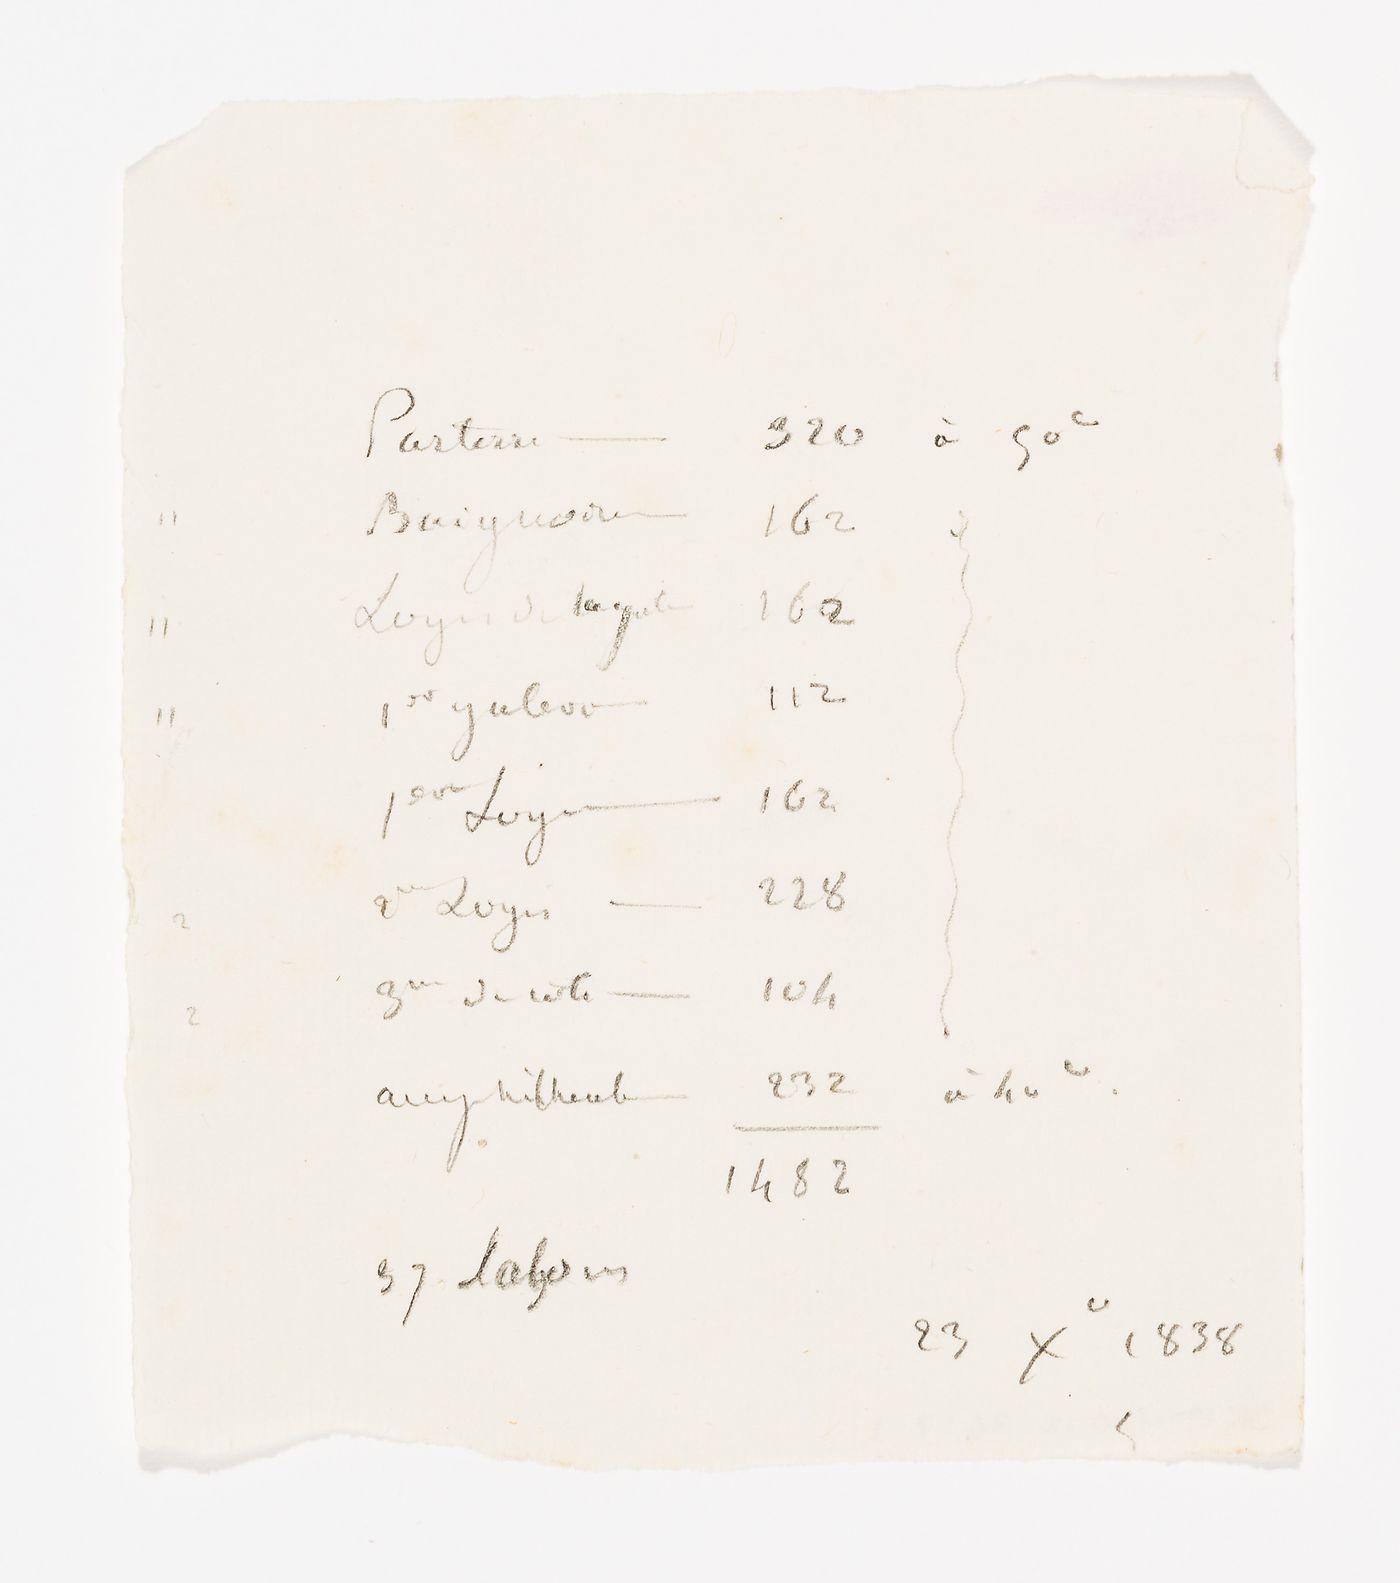 Parterre — 320 à 50c
" Baignoire — 162
" Loges de 162
" 1re galerie — 112
1ere Loges — 162
2 2me Loges — 228
2 3me de côté — 104
amphitheatre — 232 à 40c.
1482
37
23 Xe 1838